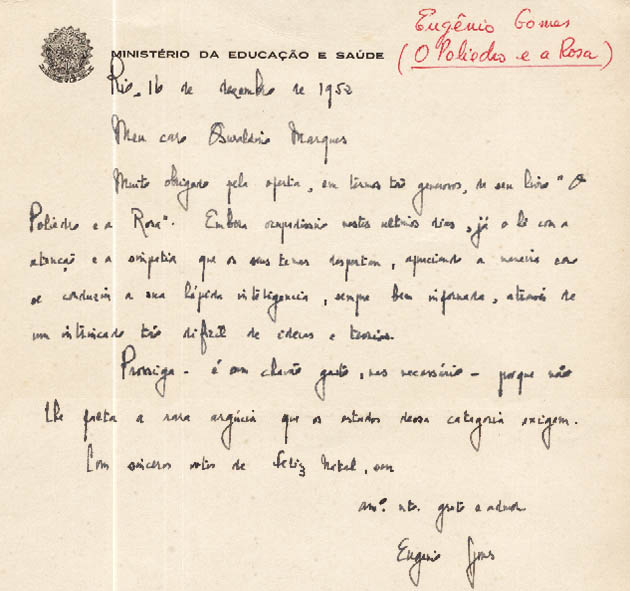 Eugênio Gomes
(O Poliedro e a Rosa)
MINISTÉRIO DA EDUCAÇÃO E SAÚDE
Rio, 16 de dezembro de 1952
Meu caro Oswaldino Marques
Muito obrigado pela oferta, em termos tão generosos, de seu livro "O
Poliedro e a Rosa". Embora ocupadíssimo nestes ultimos dias, já o li com a
atenção e a simpatia que os seus temas despertam, apreciando a maneira como
se conduziu a sua lúcida inteligencia, sempre bem informada, através de
um intrincado tão difícil de ideias e teorias.
Prossiga - é um chavão gasto, mas necessário - porque não
lhe falta a rara argúcia que os estudos dessa categoria exigem.
Com sinceros votos de feliz Natal, seu
amº. mto. grato e admor.
Eugenio Gomes